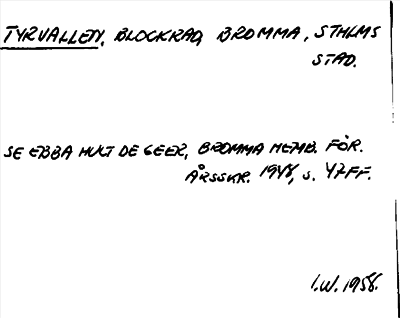 TYRVALLEN, BLOCKRAD, BROMMA, STHLMS
STAD.
SE EBBA HULT DE GEER, BROMMA HEMB. FÖR.
ÅRSSKR. 1948, S. 47FF.
I.W. 1958.